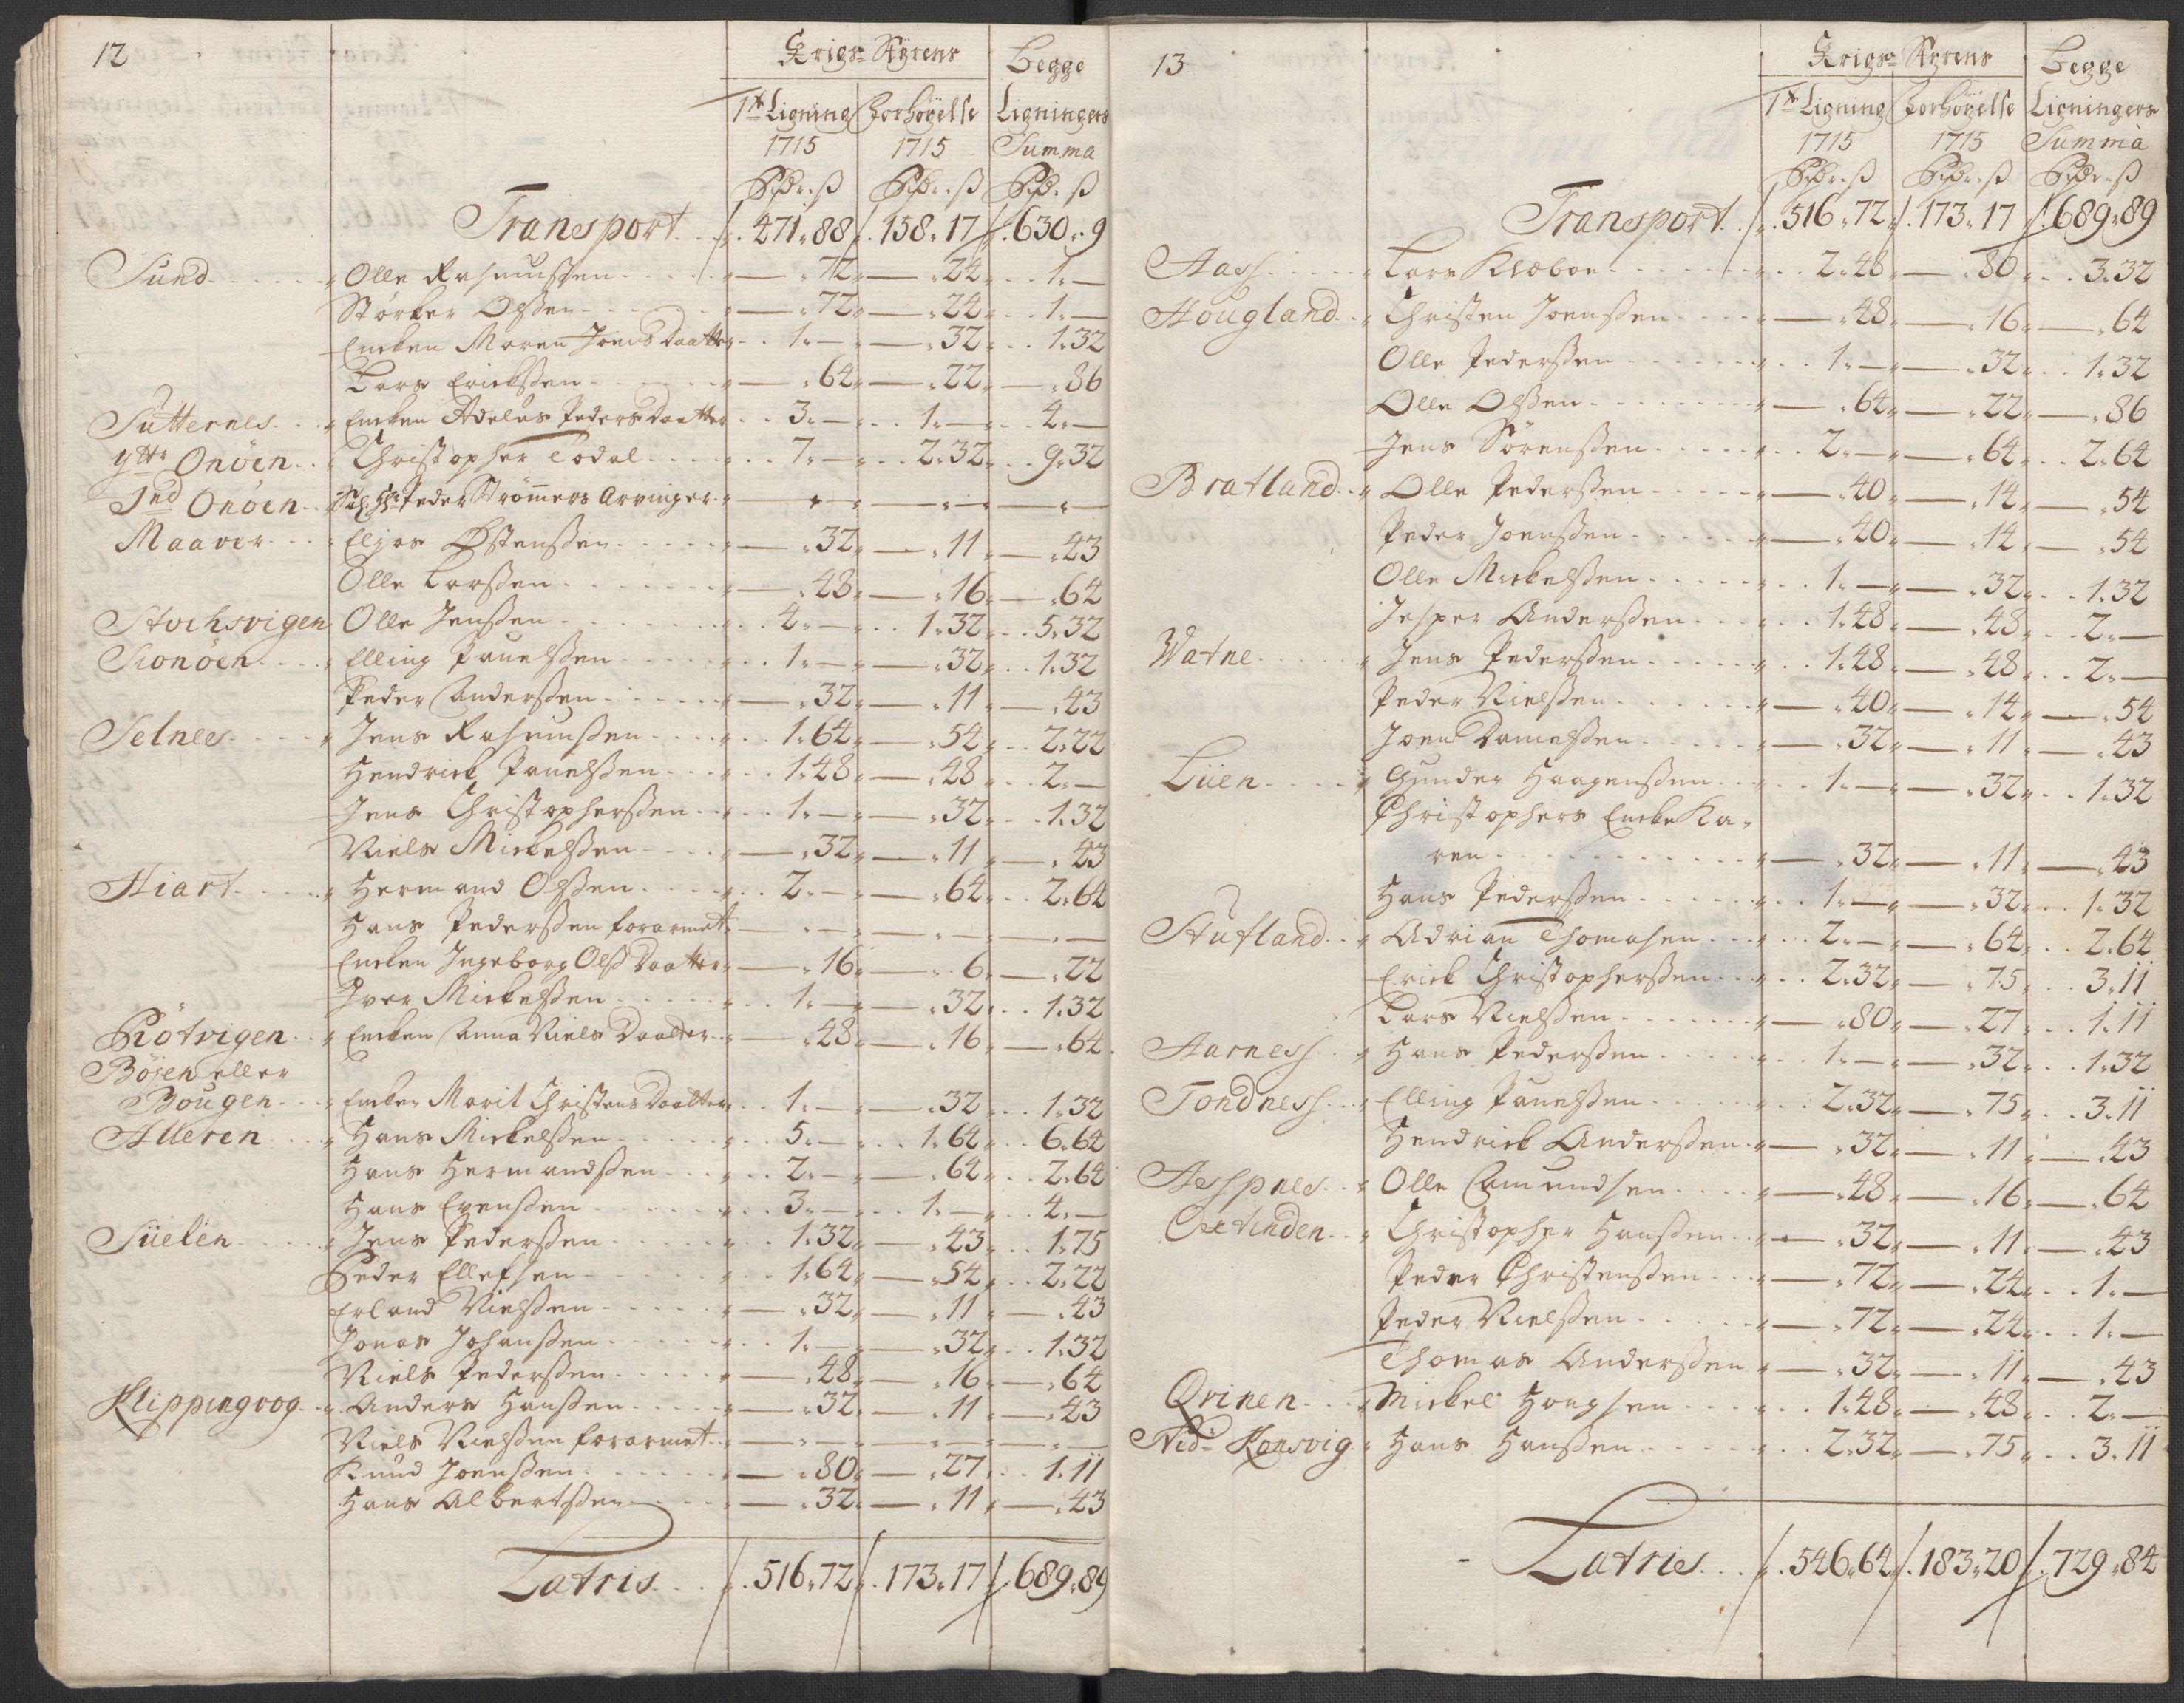 12
Krigs Styrens Begge
1te Ligning Forhöyelse Ligningers
1715 1715 Summa
Rdr. ß Rdr. ß Rdr. ß
Transport 471 88 158 17 630 9
Sund Olle Rasmussen — 72 — 24 1 —
Störker Olssen — 72 — 24 1 —
Encken Maren Joens Daatter 1 — — 32 1 32
Lars Erichssen — 64 — 22 — 86
Sutternes Encken Adelus Peders Daatter 3 — 1 — 4 —
Ytte Onöen Christopher Todal 7 — 2 32 9 32
Ind Onöen Sal. Hr Peder Strömers Arvinger — — —
Maaver Elias Östenssen — 32 — 11 — 43
Olle Larssen — 48 — 16 — 64
Stochsvigen Olle Jenssen 4 — 1 32 5 32
Kionöen Elling Pauelssen 1 — — 32 1 32
Peder Anderssen — 32 — 11 — 43
Selnes Jens Rasmussen 1 64 — 54 2 22
Hendrick Pauelssen 1 48 — 48 2 —
Jens Christopherssen 1 — — 32 1 32
Niels Mickelssen — 32 — 11 — 43
Hiart Hermand Olssen 2 — — 64 2 64
Hans Pederssen forarmet — — —
Encken Ingeborg Olss Daatter — 16 — 6 — 22
Iver Mickelssen 1 — — 32 1 32
Kiötvigen Encken Anna Niels Daatter — 48 — 16 — 64
Böyen eller
Bougen Encken Marit Christens Daatter 1 — — 32 1 32
Alleren Hans Mickelssen 5 — 1 64 6 64
Hans Hermandssen 2 — — 64 2 64
Hans Evenssen 3 — 1 — 4 —
Süelen Jens Pederssen 1 32 — 43 1 75
Peder Ellefsen 1 64 — 54 2 22
Erland Nielssen — 32 — 11 — 43
Jonas Johanssen 1 — — 32 1 32
Niels Pederssen — 48 — 16 — 64
Klippingvog Anders Hanssen — 32 — 11 — 43
Niels Nielssen forarmet — — —
Knud Joenssen — 80 — 27 1 11
Hans Albertssen — 32 — 11 — 43
Latris 516 72 173 17 689 89
13
Krigs Styrens Begge
1te Ligning Forhöyelse Ligningers
1715 1715 Summa
Rdr. ß Rdr. ß Rdr. ß
Transport 516 72 173 17 689 89
Aass Lars Klæboe 2 48 — 80 3 32
Hougland Christen Joenssen — 48 — 16 — 64
Olle Pederssen 1 — — 32 1 32
Olle Olssen — 64 — 22 — 86
Jens Sörenssen 2 — — 64 2 64
Bratland Olle Pederssen — 40 — 14 — 54
Peder Joenssen — 40 — 14 — 54
Olle Mickelssen 1 — — 32 1 32
Jesper Anderssen 1 48 — 48 2 —
Watne Jens Pederssen 1 48 — 48 2 —
Peder Nielssen — 40 — 14 — 54
Joen Danielssen — 32 — 11 — 43
Lüen Gunder Haagenssen 1 — — 32 1 32
Christophers Encke Ka-
ren — 32 — 11 — 43
Hans Pederssen 1 — — 32 1 32
Stutland Adrian Thomasen 2 — — 64 2 64
Erick Christopherssen 2 32 — 75 3 11
Lars Nielssen — 80 — 27 1 11
Aarness Hans Pederssen 1 — — 32 1 32
Tondness Elling Pauelssen 2 32 — 75 3 11
Hendrick Anderssen — 32 — 11 — 43
Aespnes Olle Amundsen — 48 — 16 — 64
Oxtinden Christopher Hanssen — 32 — 11 — 43
Peder Christenssen — 72 — 24 1 —
Peder Nielssen — 72 — 24 1 —
Thomas Anderssen — 32 — 11 — 43
Qvinen Mickel Hougsen 1 48 — 48 2 —
Ned: Konsvig Hans Hanssen 2 32 — 75 3 11
Latris 546 64 183 20 729 84